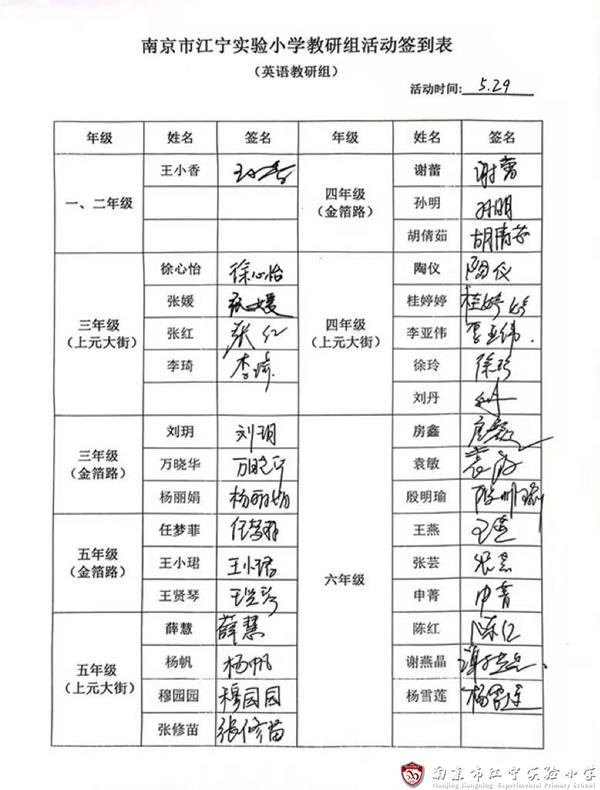 南京市江宁实验小学教研组活动签到表
（英语教研组）
活动时间: 5.29
年级 姓名 签名 年级 姓名 签名
一、二年级 王小香
四年级（金箔路） 谢蕾 谢蕾
孙明 孙明
胡倩茹 胡倩茹
三年级（上元大街） 徐心怡 徐心怡
张媛 张媛
张红 张红
李琦 李琦
四年级（上元大街） 陶仪 陶仪
桂婷婷 桂婷婷
李亚伟 李亚伟
徐玲 徐玲
刘丹
三年级（金箔路） 刘玥 刘玥
万晓华 万晓华
杨丽娟 杨丽娟
五年级（金箔路） 任梦菲 任梦菲
王小珺 王小珺
王贤琴 王贤琴
五年级（上元大街） 薛慧 薛慧
杨帆 杨帆
穆园园 穆园园
张修苗 张修苗
六年级 房鑫
袁敏 袁敏
殷明瑜 殷明瑜
王燕 王燕
张芸 张芸
申菁 申菁
陈红 陈红
谢燕晶
杨雪莲 杨雪莲
南京市江宁实验小学
Nanjing Jiangning Experimental Primary School